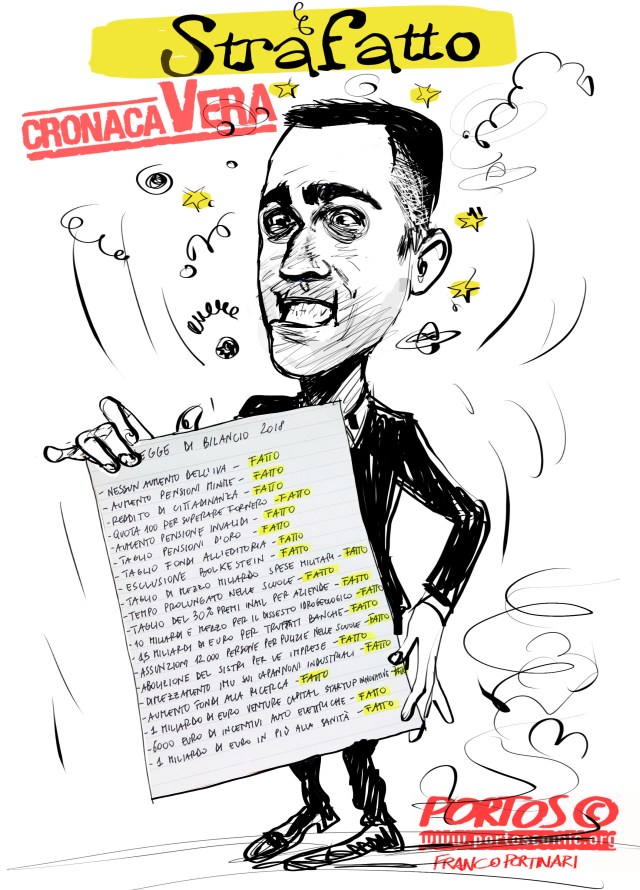 Strafatto
CRONACA VERA
LEGGE DI BILANCIO 2018
- NESSUN AUMENTO DELL'IVA - FATTO
- AUMENTO PENSIONI MINIME - FATTO
- REDDITO DI CITTADINANZA - FATTO
- QUOTA 100 PER SUPERARE FORNERO - FATTO
- AUMENTO PENSIONE INVALIDI - FATTO
- TAGLIO PENSIONI D'ORO - FATTO
- TAGLIO FONDI ALL'EDITORIA - FATTO
- ESCLUSIONE BOLKESTEIN - FATTO
- TAGLIO DI MEZZO MILIARDO SPESE MILITARI - FATTO
- TEMPO PROLUNGATO NELLE SCUOLE - FATTO
- TAGLIO DEL 30% PREMI INAIL PER AZIENDE - FATTO
- 10 MILIARDI E MEZZO PER IL DISSESTO IDROGEOLOGICO - FATTO
- 1,5 MILIARDI DI EURO PER TRUFFATI BANCHE - FATTO
- ASSUNZIONI 12000 PERSONE PER PULIZIE NELLE SCUOLE - FATTO
- ABOLIZIONE DEL SISTRI PER LE IMPRESE - FATTO
- DIMEZZAMENTO IMU SUI CAPANNONI INDUSTRIALI - FATTO
- AUMENTO FONDI ALLA RICERCA - FATTO
- 1 MILIARDO DI EURO VENTURE CAPITAL STARTUP INNOVATIVE - FATTO
- 6000 EURO DI INCENTIVI AUTO ELETTRICHE - FATTO
- 1 MILIARDO DI EURO IN PIÙ ALLA SANITÀ - FATTO
PORTOS ©
www.portoscomic.org
FRANCO PORTINARI